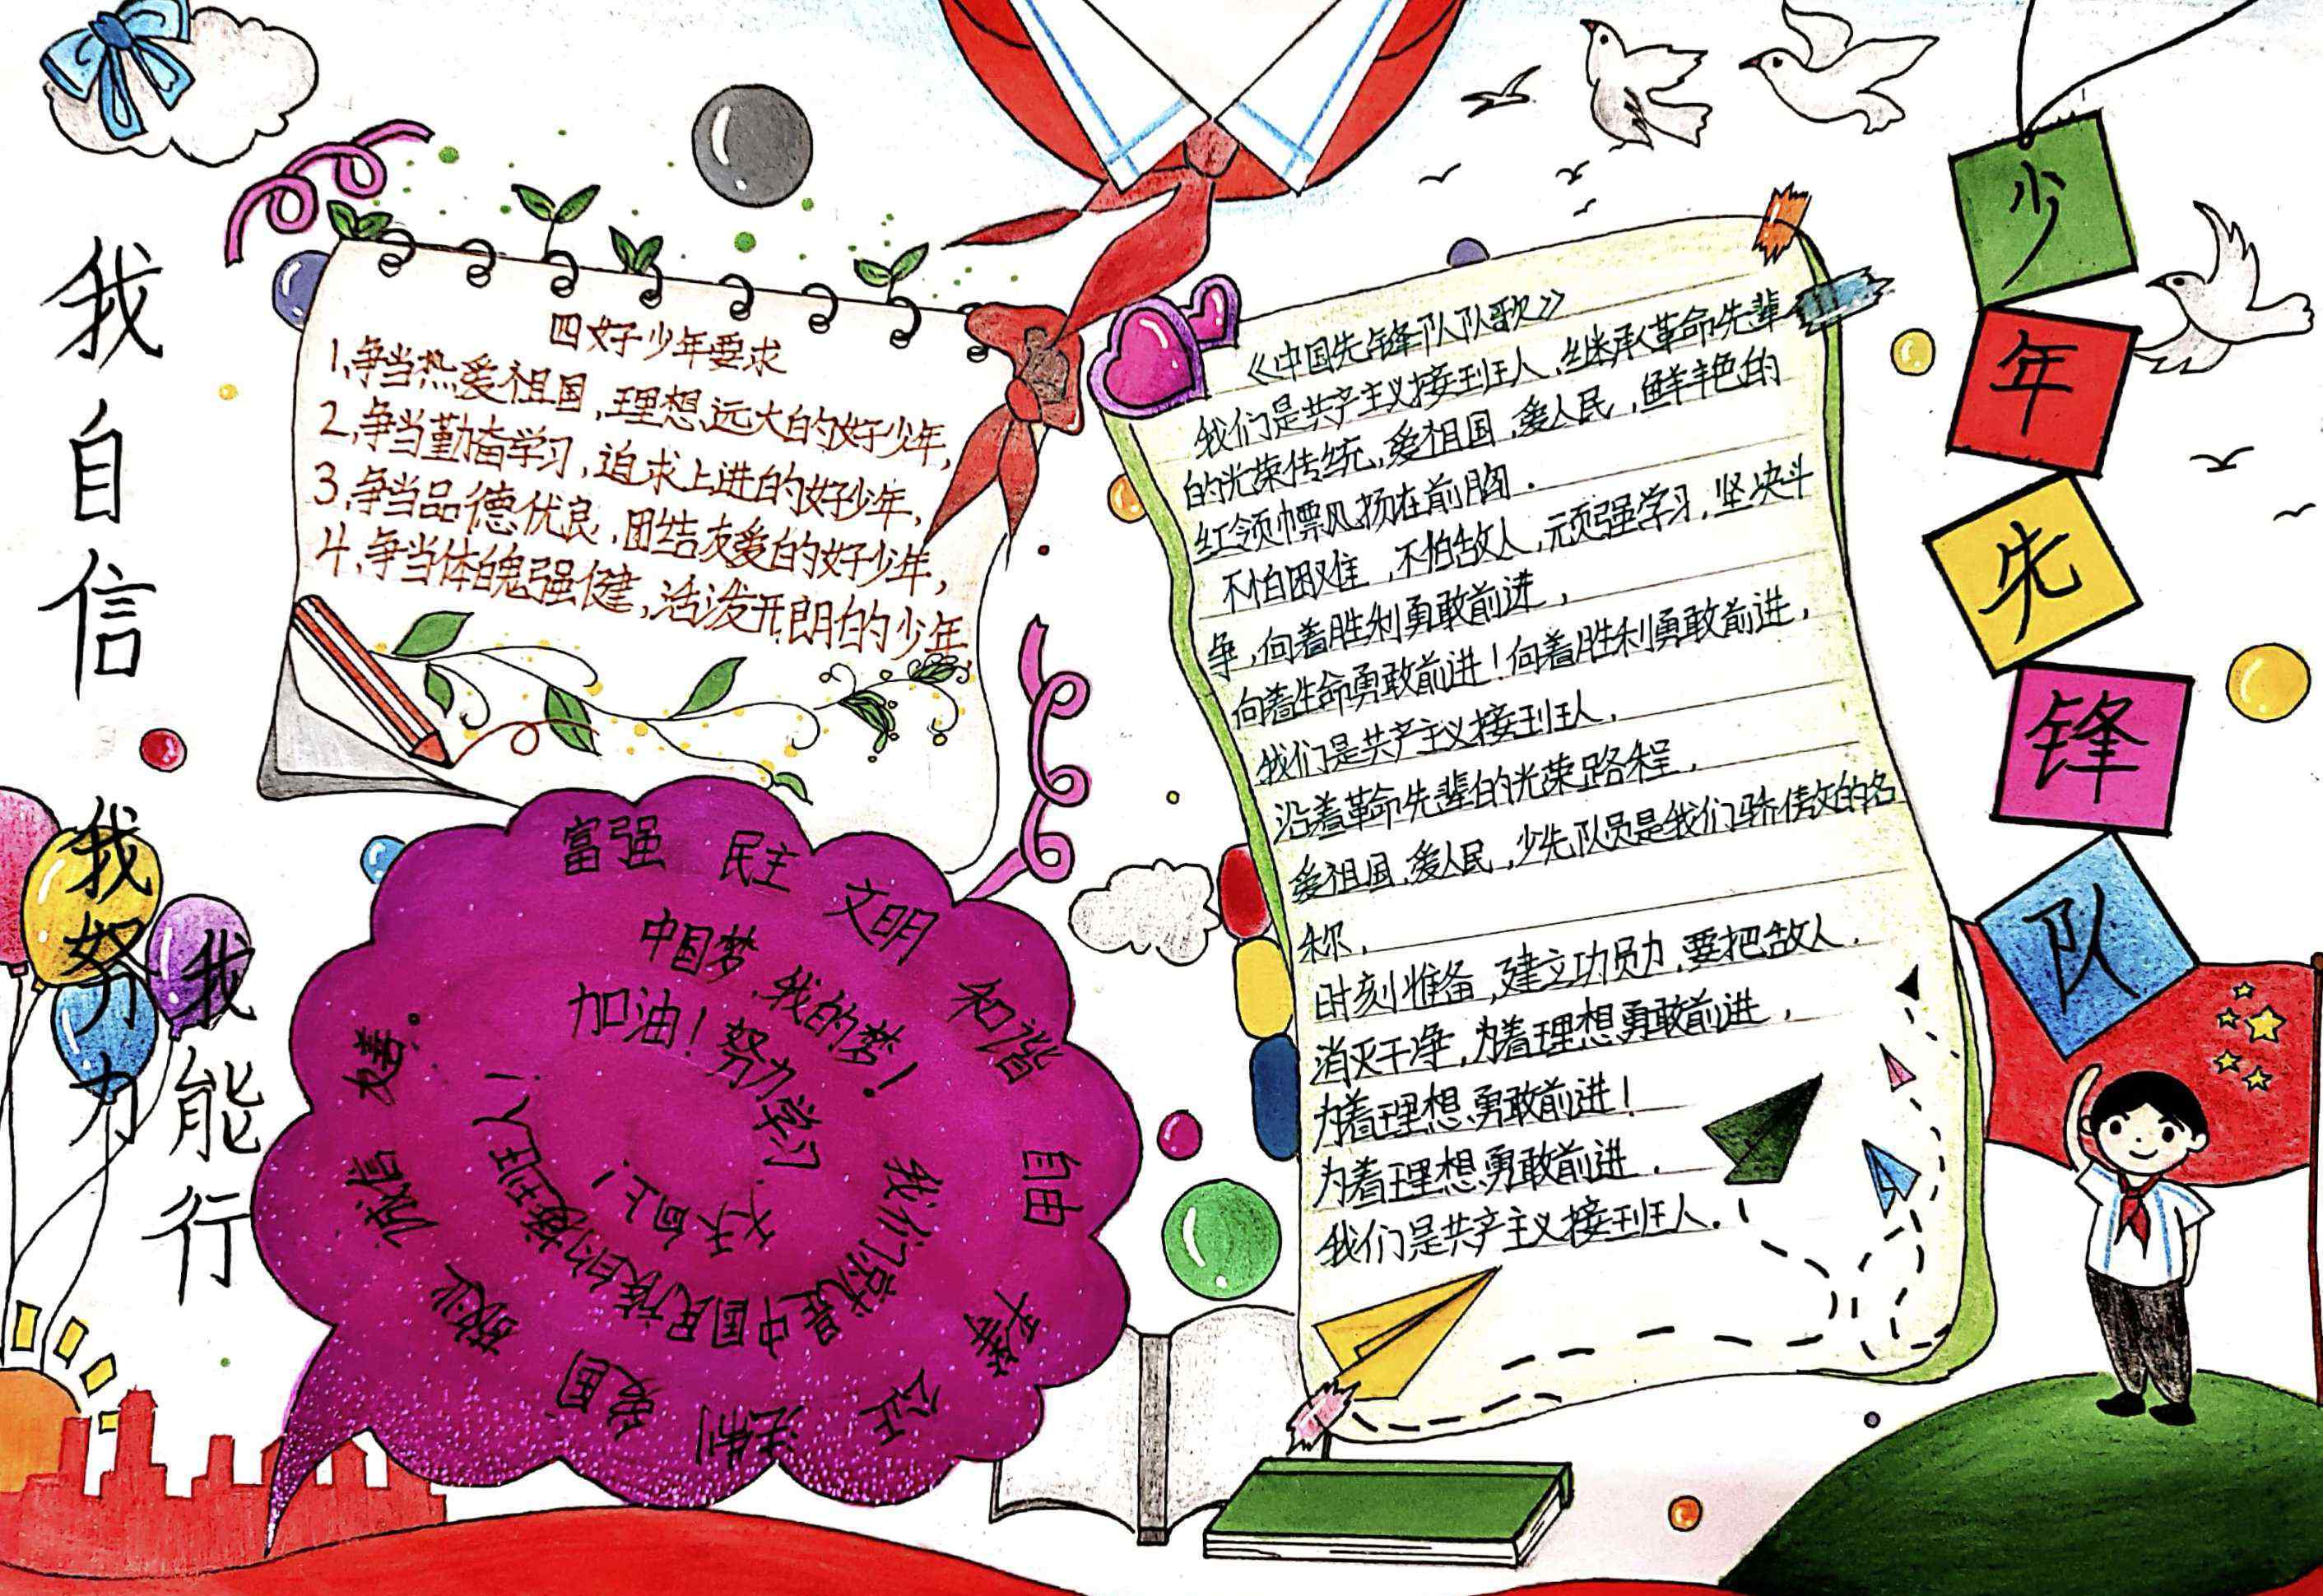 我自信
我努力
我能行
四好少年要求
1、争当热爱祖国,理想远大的好少年,
2、争当勤奋学习,追求上进的好少年,
3、争当品德优良,团结友爱的好少年,
4、争当体魄强健,活泼开朗的少年
《中国先锋队队歌》
我们是共产主义接班人,继承革命先辈
的光荣传统,爱祖国,爱人民,鲜艳的
红领巾飘扬在前胸.
不怕困难,不怕敌人,顽强学习,坚决斗
争,向着胜利勇敢前进,
向着生命勇敢前进!向着胜利勇敢前进,
我们是共产主义接班人,
沿着革命先辈的光荣路程,
爱祖国,爱人民,少先队员是我们骄傲的名
称,
时刻准备,建立功勋,要把敌人,
消灭干净,为着理想勇敢前进,
为着理想勇敢前进!
为着理想勇敢前进.
我们是共产主义接班人.
少年先锋队
富强 民主 文明 和谐 自由 平等 公正 法制 爱国 敬业 诚信 友善.
中国梦,我的梦!
我们就是中国民族的接班人!
加油!努力学习
天天向上!